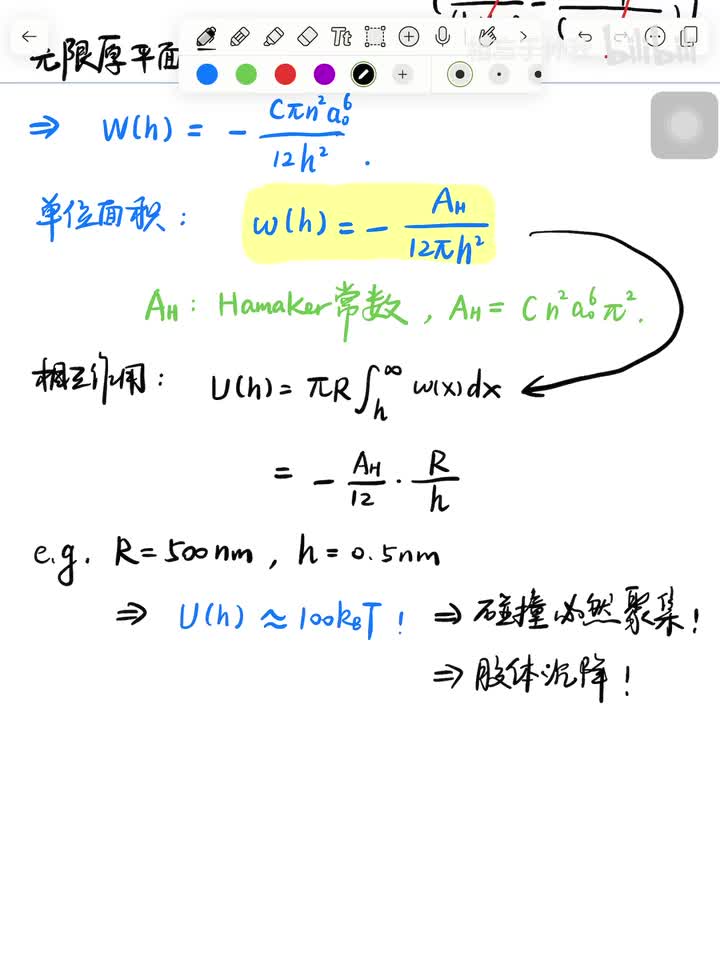 无限厚平面
Tt
bilibili
⇒ W(h) = - Cπn²a₀⁶ / 12h² .
单位面积: w(h) = - A_H / 12πh²
A_H: Hamaker常数, A_H = Cn²a₀⁶π².
相互作用: U(h) = πR∫_h^∞ w(x)dx
= - A_H/12 · R/h
e.g. R=500nm, h=0.5nm
⇒ U(h) ≈ 100k_BT! ⇒ 碰撞必然聚集!
⇒ 胶体沉降!